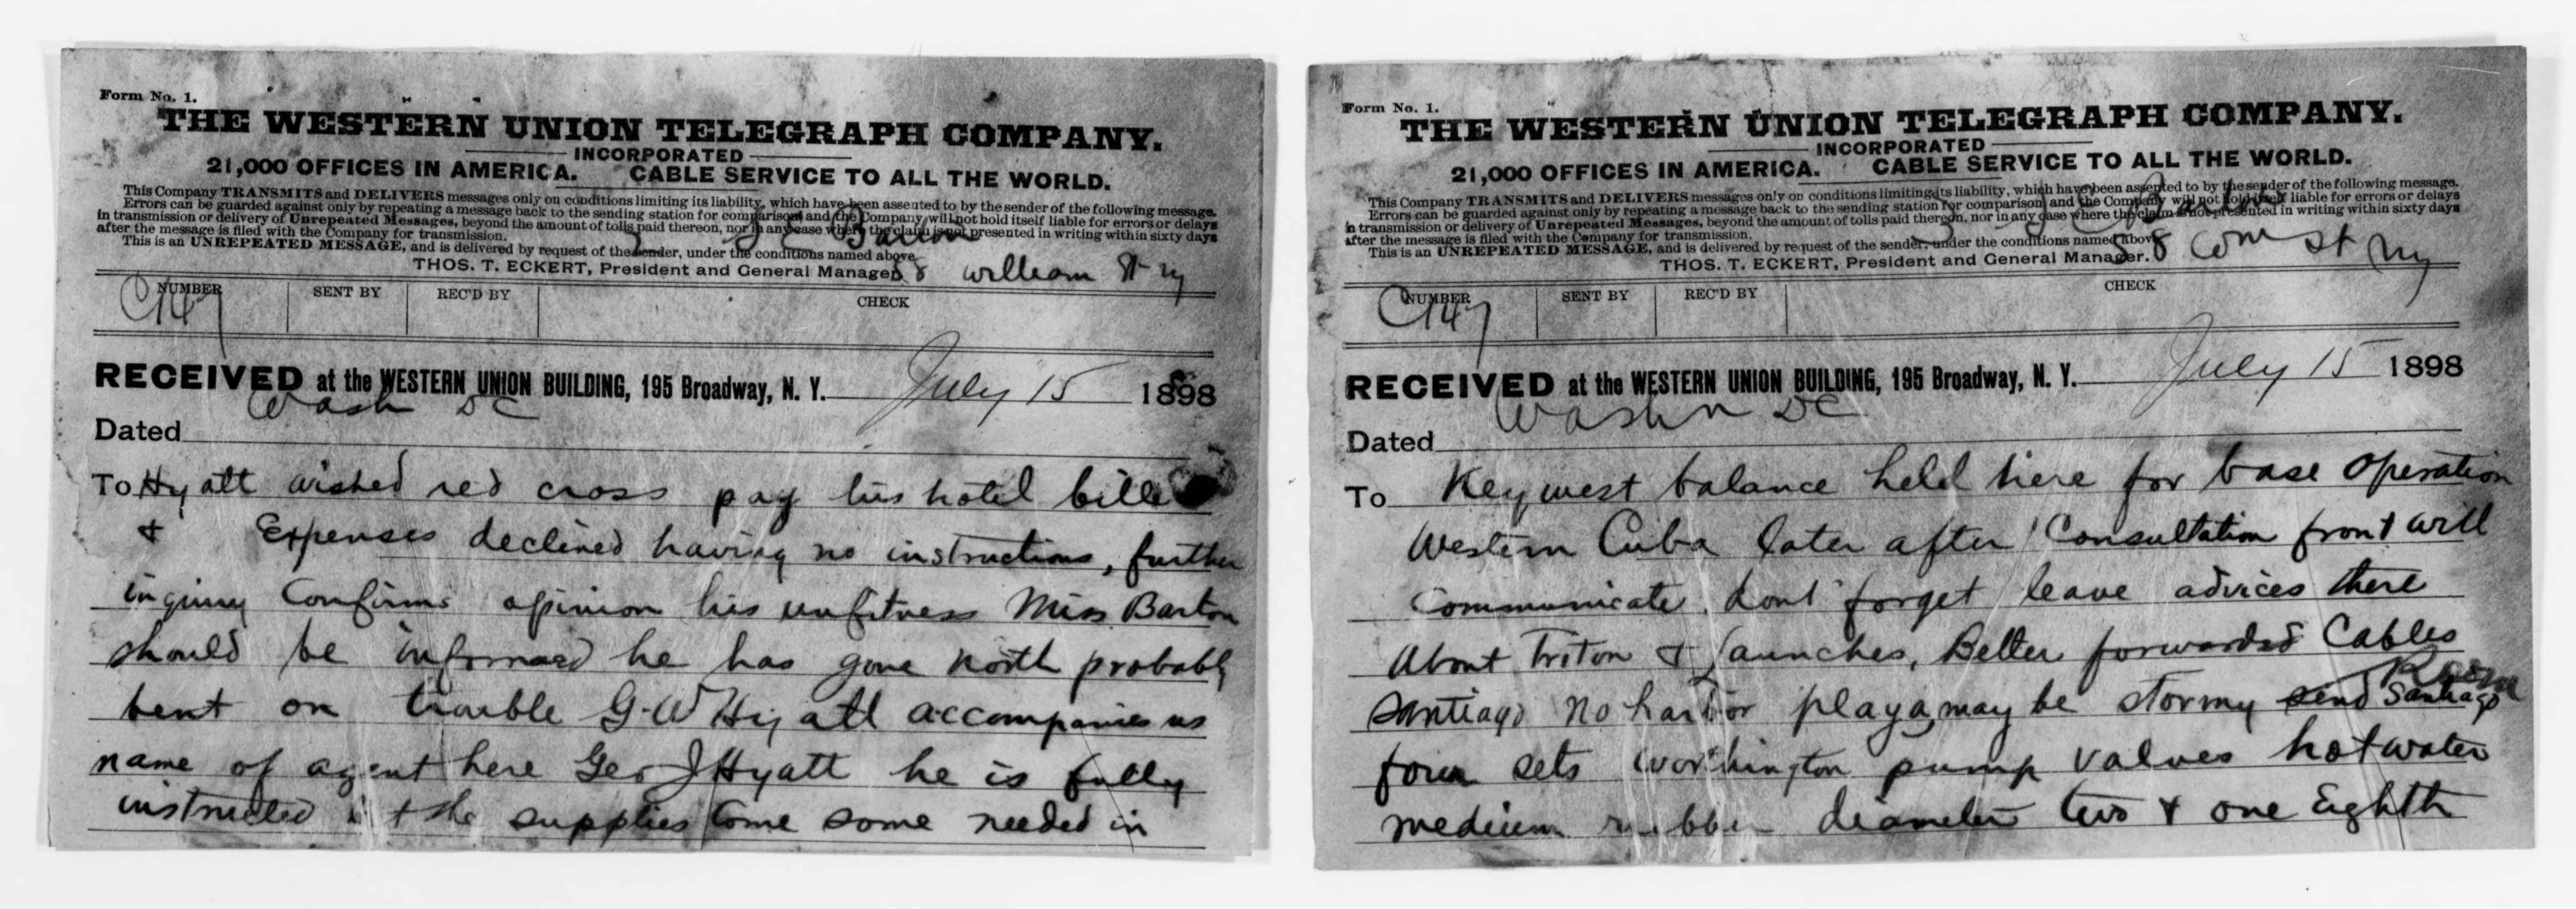 Form No. 1.
THE WESTERN UNION TELEGRAPH COMPANY.
INCORPORATED
21,000 OFFICES IN AMERICA. CABLE SERVICE TO ALL THE WORLD.
This Company TRANSMITS and DELIVERS messages only on conditions limiting its liability, which have been assented to by the sender of the following message.
Errors can be guarded against only by repeating a message back to the sending station for comparison, and the Company will not hold itself liable for errors or delays
in transmission or delivery of Unrepeated Messages, beyond the amount of tolls paid thereon, nor in any case where the claim is not presented in writing within sixty days
after the message is filed with the Company for transmission.
This is an UNREPEATED MESSAGE, and is delivered by request of the sender, under the conditions named above.
THOS. T. ECKERT, President and General Manager.
Barton
58 William St ny
NUMBER SENT BY REC'D BY CHECK
C147
RECEIVED at the WESTERN UNION BUILDING, 195 Broadway, N. Y. July 15 1898
Dated Wash DC
To Hyatt wished red cross pay his hotel bill
& Expenses declined having no instructions, further
inquiry Confirms opinion his unfitness Miss Barton
should be informed he has gone north probably
bent on trouble G.W Hyatt accompanies us
name of agent here Geo J Hyatt he is fully
instructed the supplies come some needed in
Form No. 1.
THE WESTERN UNION TELEGRAPH COMPANY.
INCORPORATED
21,000 OFFICES IN AMERICA. CABLE SERVICE TO ALL THE WORLD.
This Company TRANSMITS and DELIVERS messages only on conditions limiting its liability, which have been assented to by the sender of the following message.
Errors can be guarded against only by repeating a message back to the sending station for comparison, and the Company will not hold itself liable for errors or delays
in transmission or delivery of Unrepeated Messages, beyond the amount of tolls paid thereon, nor in any case where the claim is not presented in writing within sixty days
after the message is filed with the Company for transmission.
This is an UNREPEATED MESSAGE, and is delivered by request of the sender, under the conditions named above.
THOS. T. ECKERT, President and General Manager.
58 Wm St Ny
NUMBER SENT BY REC'D BY CHECK
C147
RECEIVED at the WESTERN UNION BUILDING, 195 Broadway, N. Y. July 15 1898
Dated Washn DC
To Key west balance held here for base Operation
Western Cuba later after Consultation front will
Communicate. dont forget leave advices there
About Triton & launches, Better forwarded Cables
Santiago no harbor playa, may be stormy send Santiago
four sets worthington pump valves hot water
medium rubber diameter two & one Eighth